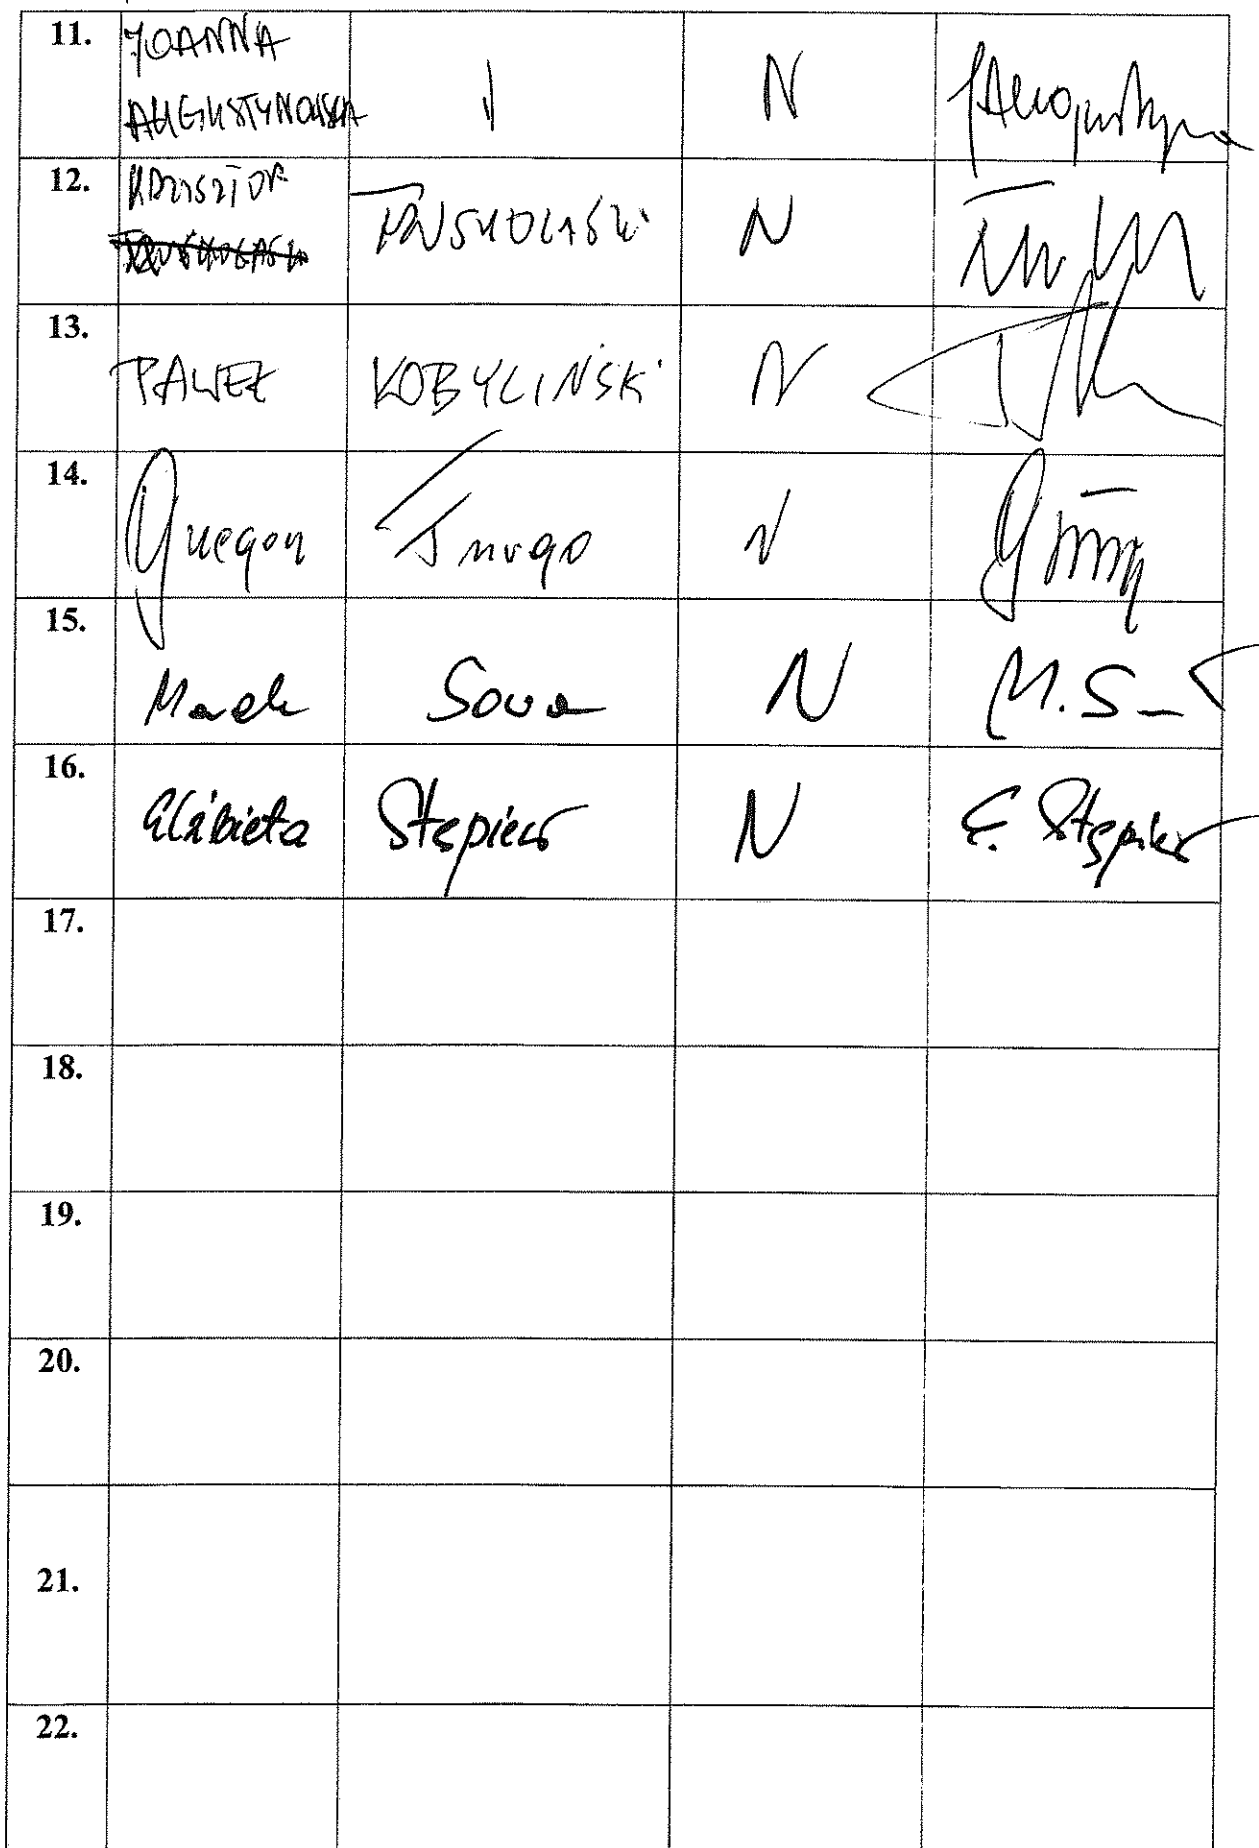 11. JOANNA
AUGUSTYNOWSKA N
12. KRZYSZTOF
TRUSKOLASKI N
13. PAWEŁ KOBYLIŃSKI N
14. N
15. Marek Sowa N M. S
16. Elżbieta Stępień N E. Stępień
17.
18.
19.
20.
21.
22.